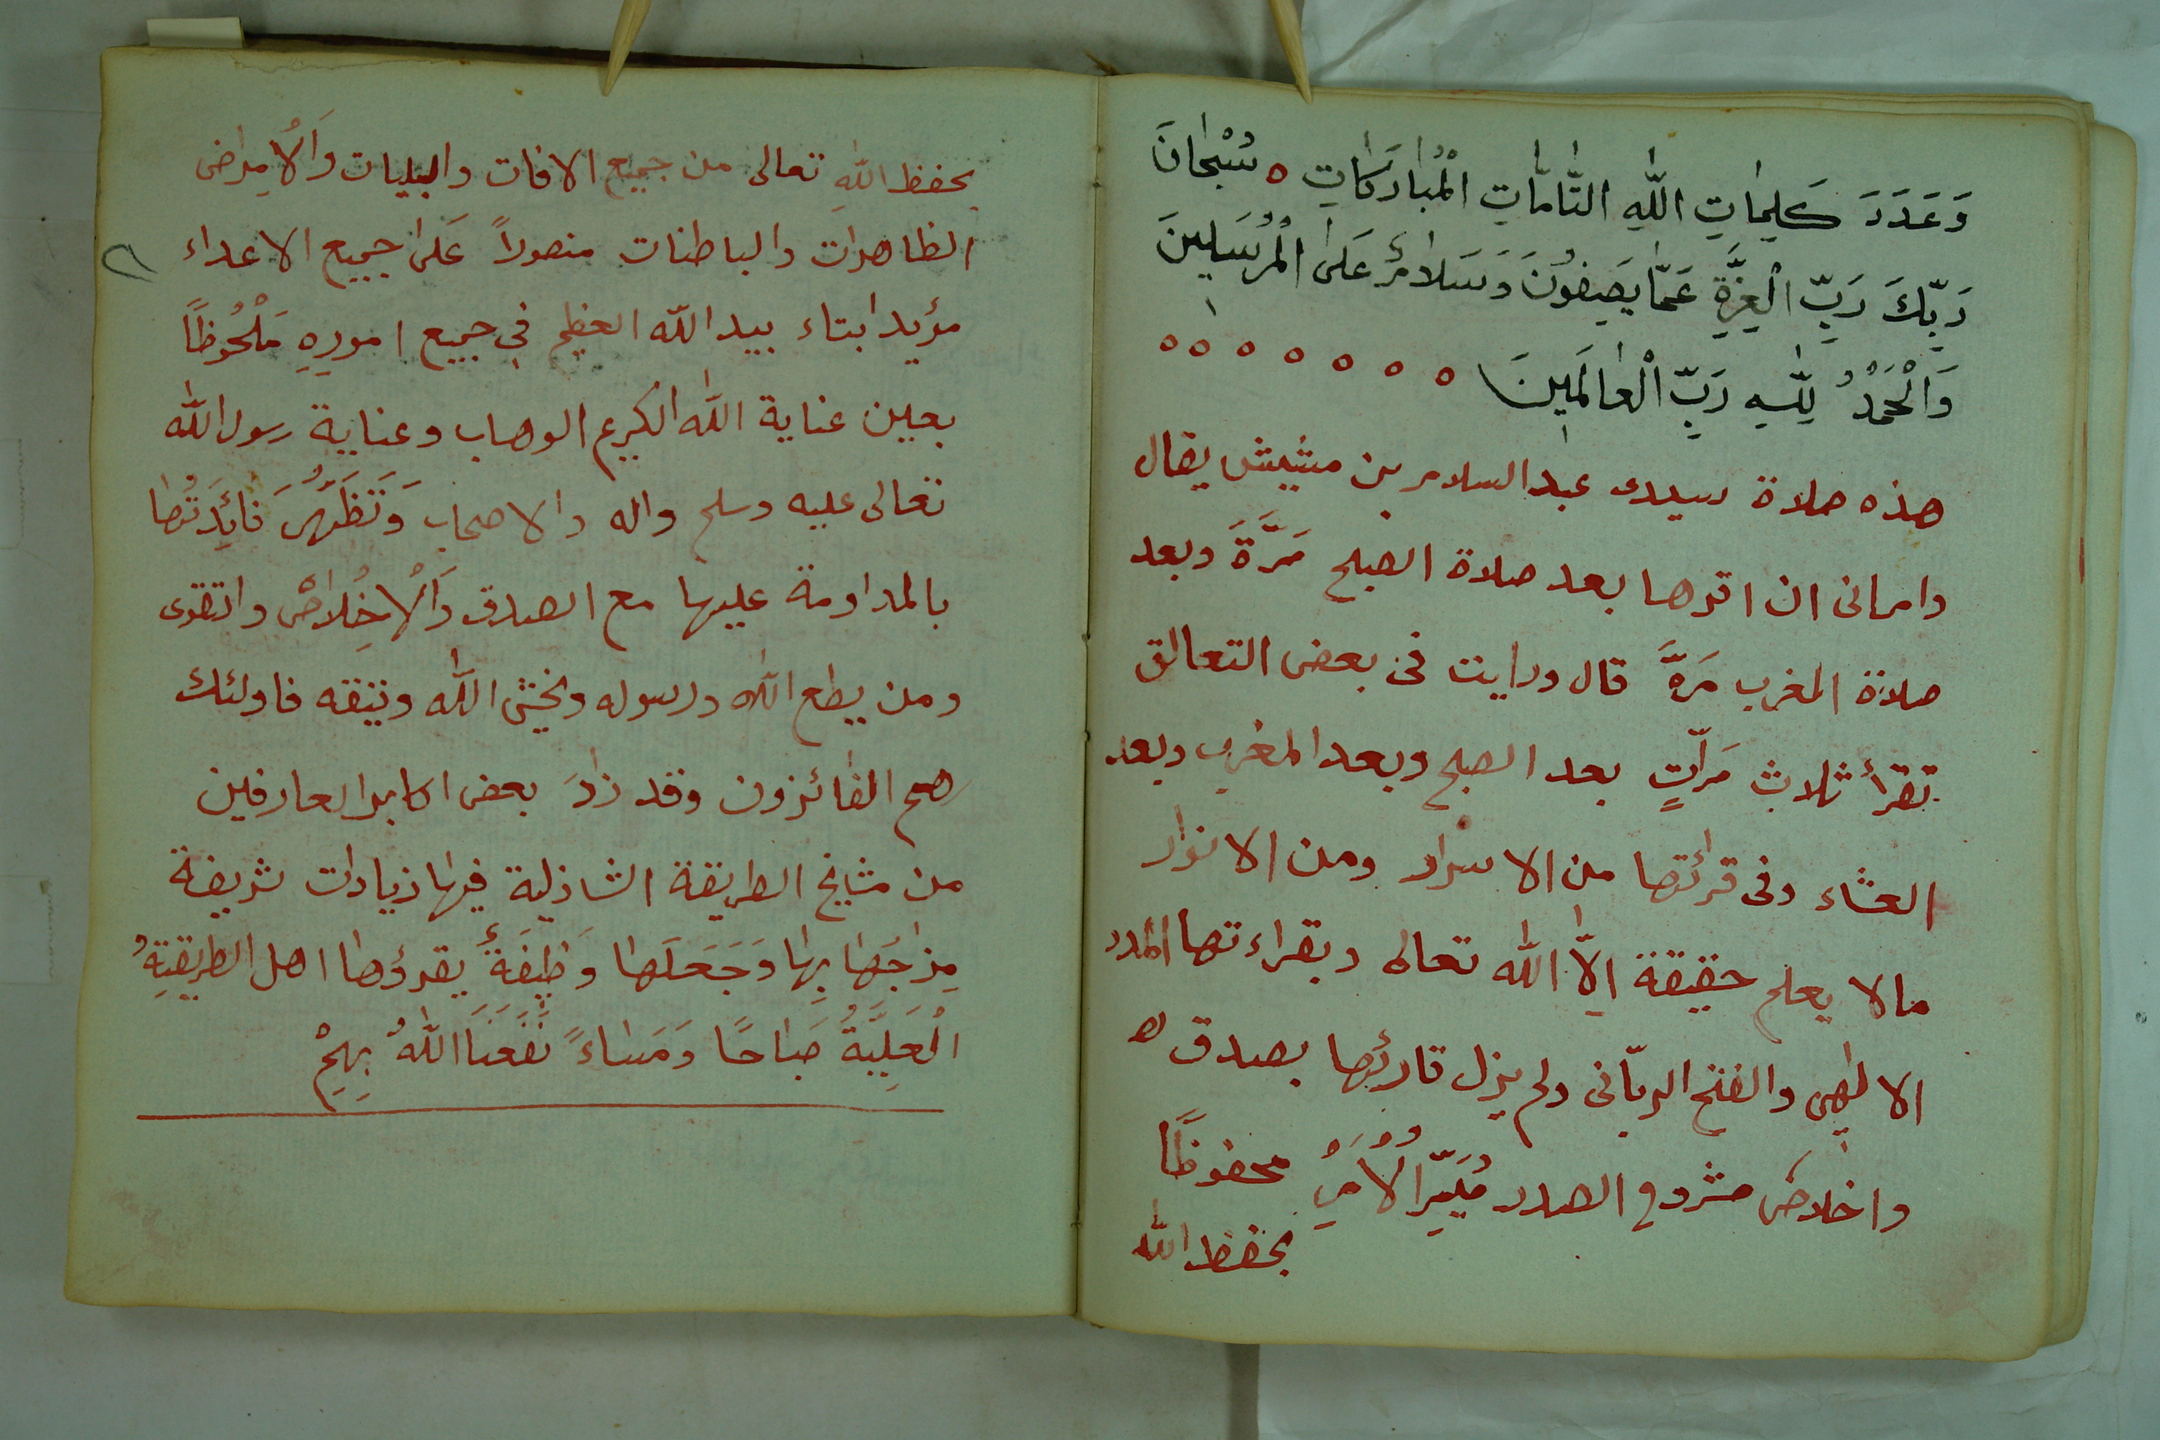 وَعَدَدَ كَلِمَاتِ اللّٰهِ التَّامَّاتِ الْمُبَارَكَاتِ ه سُبْحَانَ
رَبِّكَ رَبِّ الْعِزَّةِ عَمَّا يَصِفُونَ وَسَلَامٌ عَلَى الْمُرْسَلِينَ
وَالْحَمْدُ لِلّٰهِ رَبِّ الْعَالَمِينَ ه ه ه ه ه ه ه
هذه صلاة سيدى عبد السلام بن مشيش يقال
وامرانى ان اقرها بعد صلاة الصبح مَرَّةَ وبعد
صلاة المغرب مَرَّةَ قال ورايت فى بعض التعالق
تقرأ ثلاث مَرَّتٍ بعد الصبح وبعد المغرب وبعد
العشاء وفى قرائتها من الاسرار ومن الانوار
مالا يعلم حقيقة اِلَّا اللّٰه تعالى وبقراءتها المدد
الالٰهى والفتح الربّانى ولم يزل قارئها بصدق
واخلاص مشروح الصدر مُيَسَّرَ الْاُمُرِ محفوظًا
بحفظ الله
بحفظ اللّٰهِ تعالى من جميع الافات والبليات وَالْاَمِراض
الظاهرات والباطنات منصوراً عَلى جميع الاعداء
مؤيدا بتاء بيد اللّه العظيم فى جميع اموره مَلْحُوظًا
بعين عناية اللّٰه الكريم الوهاب وعناية رسول اللّٰه
تعالى عليه وسلم واله والاصحاب وَتَظَهَّرُ فَائِدَتُها
بالمداومة عليها مع الصدق وَالْاِخْلَاصْ والتقوى
ومن يطع اللّٰه ورسوله ويخشى اللّٰه ويتقه فاولئك
هم الفائزون وقد زادَ بعض اكابر العارفين
من مشايخ الطريقة الشاذلية فيها زيادات شريفة
مِزاجَها بِها وَجَعَلَها وَظِيفَةً يقرؤها اهل الطريقةِ
الْعَلِيَّةُ صَبَاحًا وَمَسَاءً نَفَعَنَا اللّٰهُ بِهِمْ